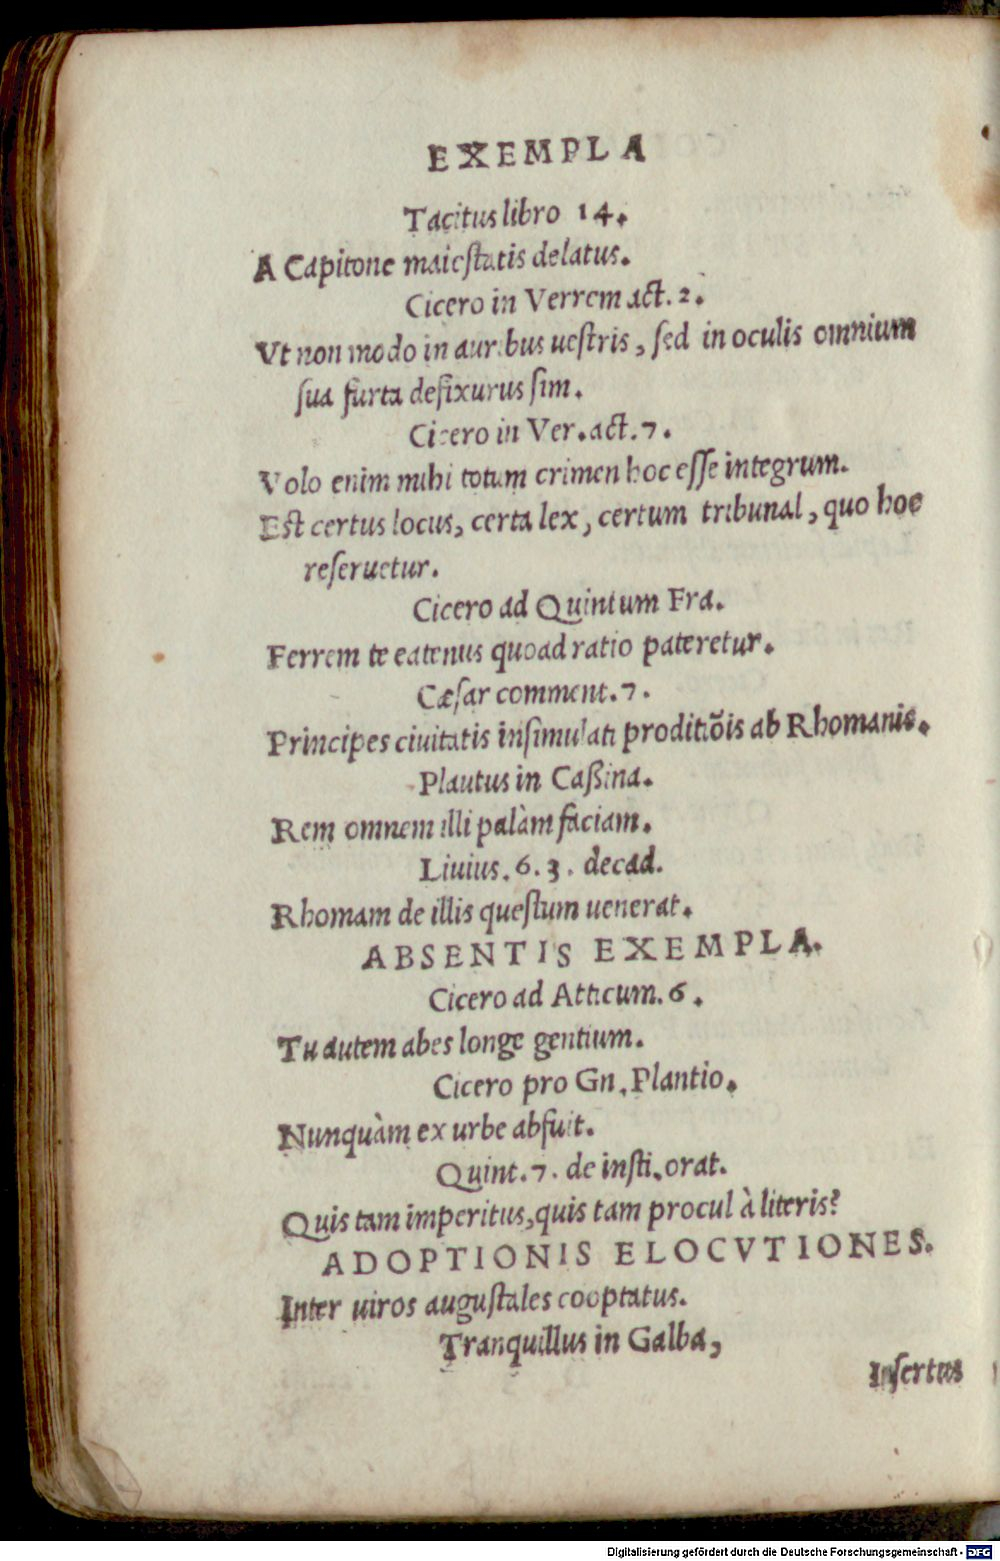 EXEMPLA
Tacitus libro 14.
A Capitone maieſtatis delatus.
Cicero in Verrem act. 2.
Vt non modo in auribus ueſtris, ſed in oculis omnium
ſua furta defixurus ſim.
Cicero in Ver. act. 7.
Volo enim mihi totum crimen hoc eſſe integrum.
Eſt certus locus, certa lex, certum tribunal, quo hoc
reſeruetur.
Cicero ad Quintum Fra.
Ferrem te eatenus quoad ratio pateretur.
Cæſar comment. 7.
Principes ciuitatis inſimulati proditiõis ab Rhomanis.
Plautus in Caßina.
Rem omnem illi palàm faciam.
Liuius. 6. 3. decad.
Rhomam de illis queſtum uenerat.
ABSENTIS EXEMPLA.
Cicero ad Atticum. 6.
Tu autem abes longe gentium.
Cicero pro Gn. Plantio.
Nunquàm ex urbe abfuit.
Quint. 7. de inſti. orat.
Quis tam imperitus, quis tam procul à literis?
ADOPTIONIS ELOCVTIONES.
Inter uiros auguſtales cooptatus.
Tranquillus in Galba,
Inſertus
Digitalisierung gefördert durch die Deutsche Forschungsgemeinschaft - DFG